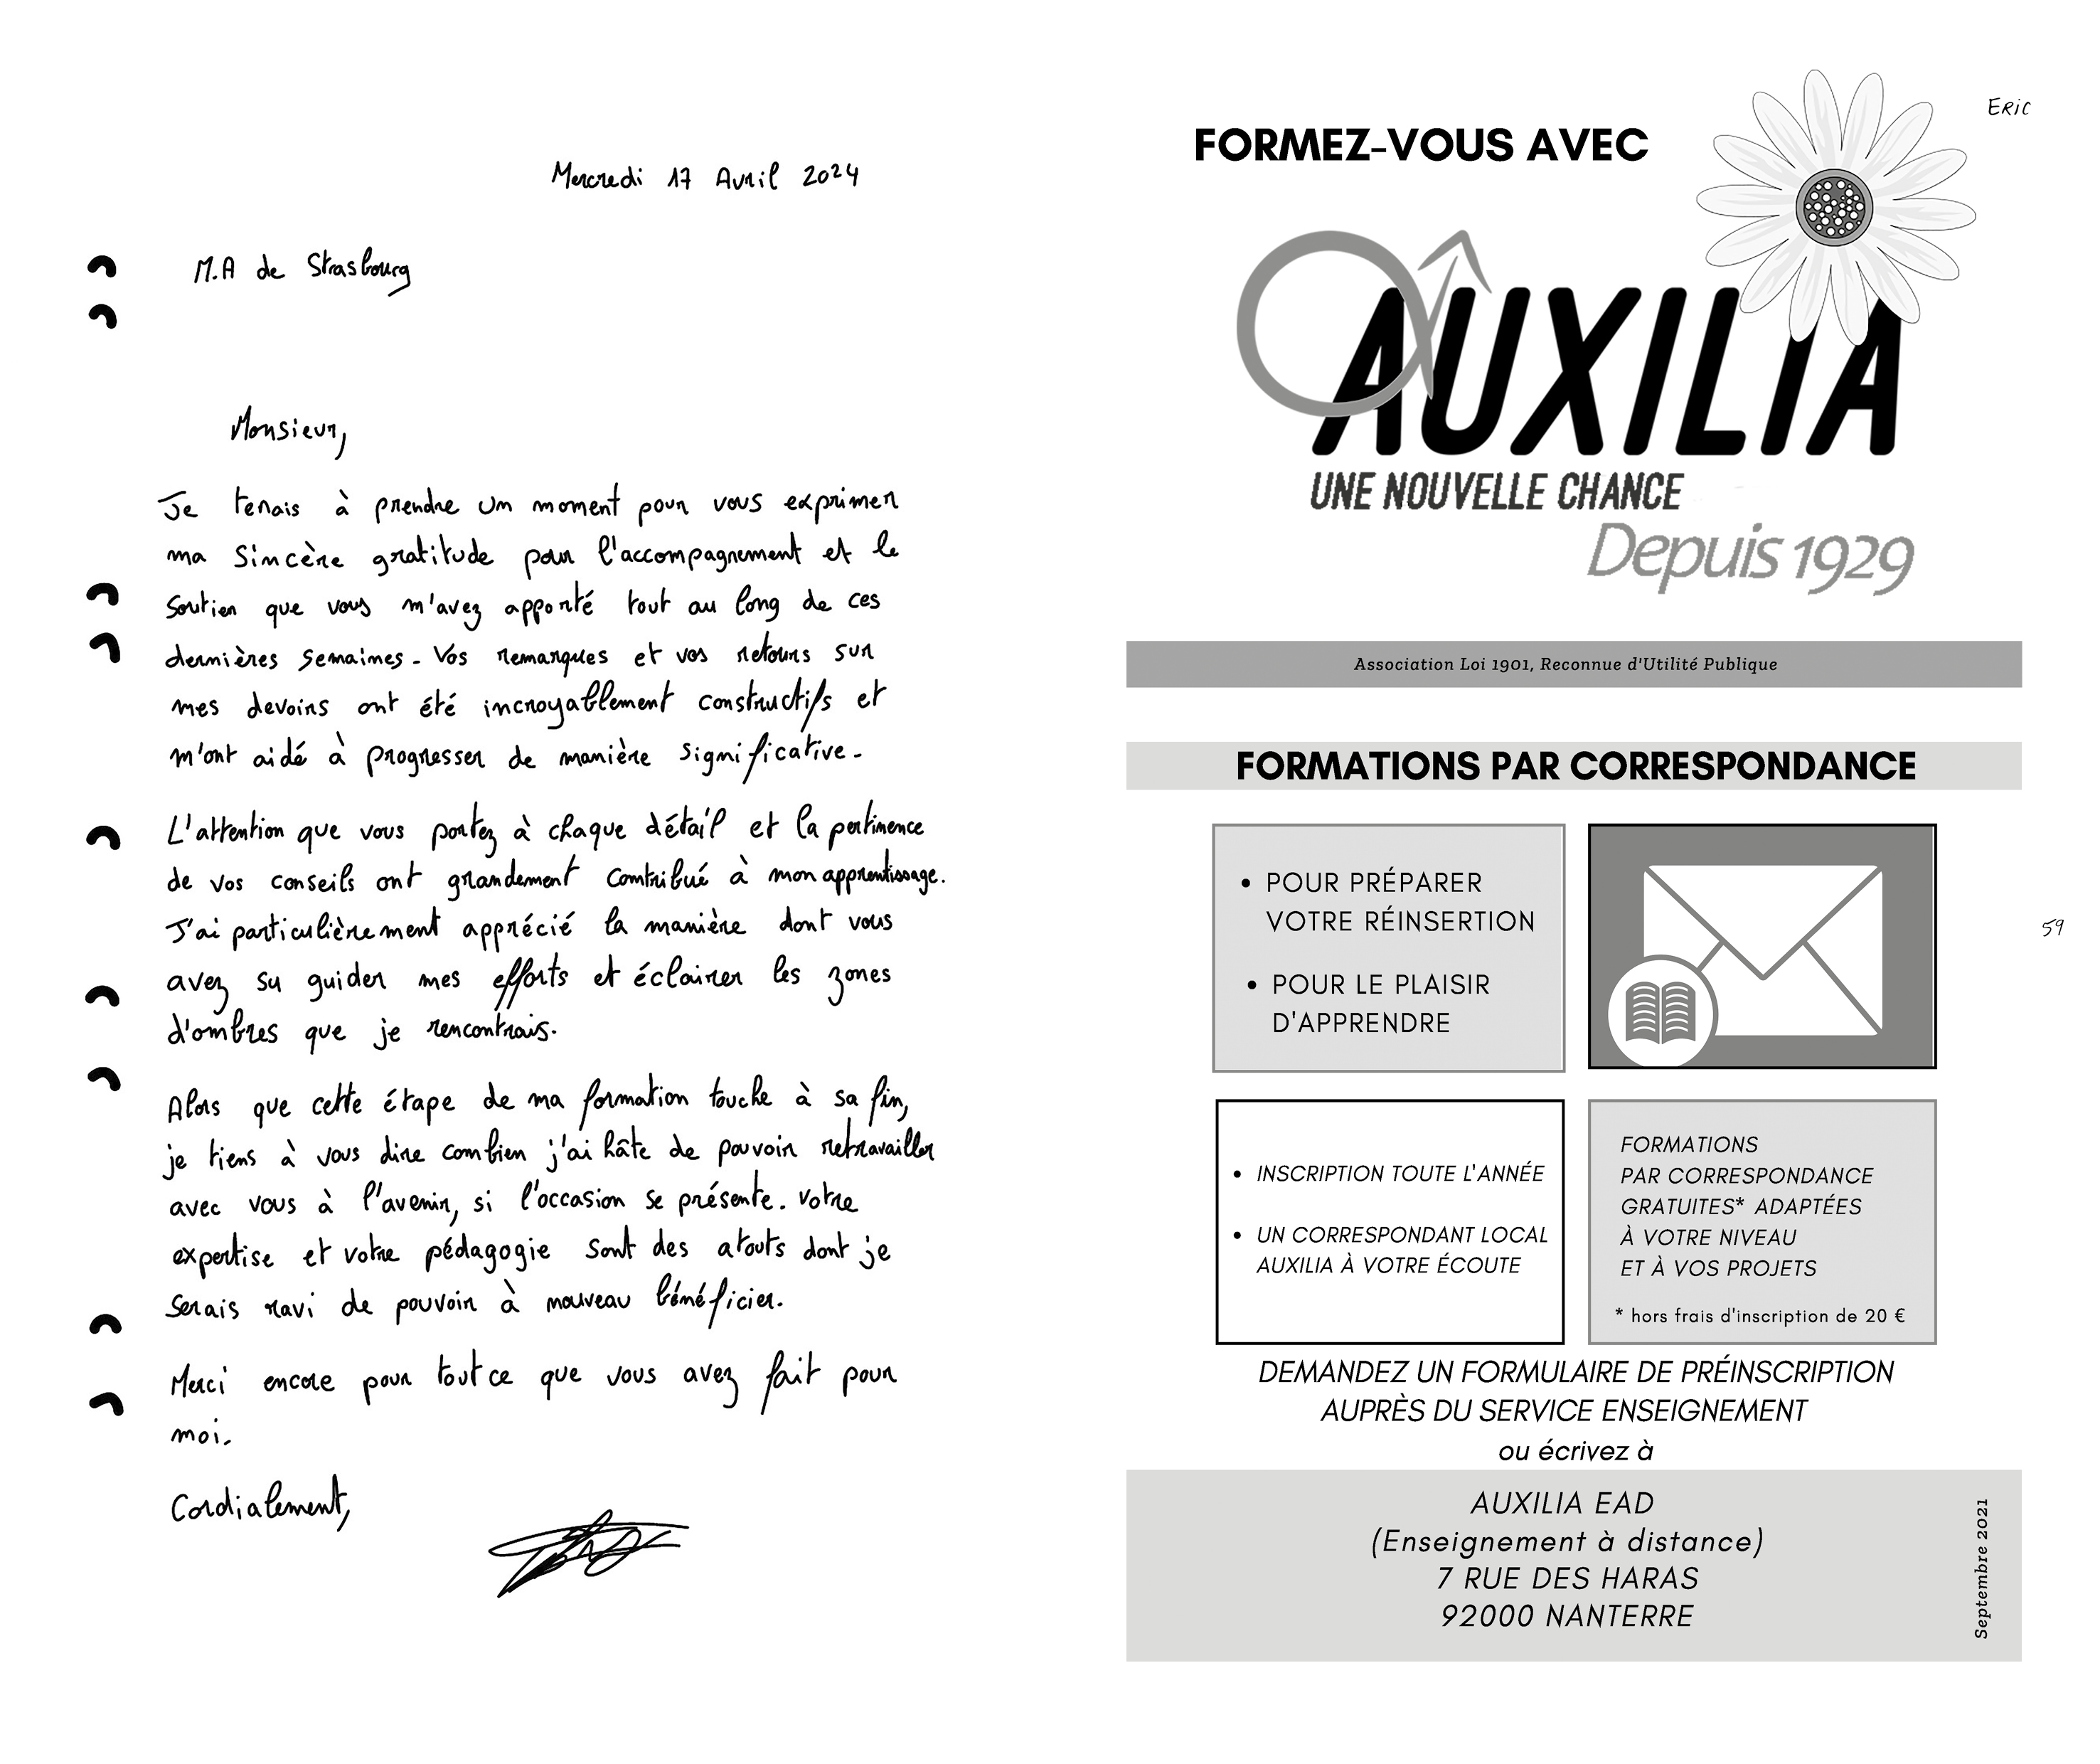 Mercredi 17 Avril 2024
M.A de Strasbourg
Monsieur,
Je tenais à prendre un moment pour vous exprimer
ma sincère gratitude pour l'accompagnement et le
soutien que vous m'avez apporté tout au long de ces
dernières semaines. Vos remarques et vos retours sur
mes devoirs ont été incroyablement constructifs et
m'ont aidé à progresser de manière significative.
L'attention que vous portez à chaque détail et la pertinence
de vos conseils ont grandement contribué à mon apprentissage.
J'ai particulièrement apprécié la manière dont vous
avez su guider mes efforts et éclairer les zones
d'ombres que je rencontrais.
Alors que cette étape de ma formation touche à sa fin,
je tiens à vous dire combien j'ai hâte de pouvoir retravailler
avec vous à l'avenir, si l'occasion se présente. Votre
expertise et votre pédagogie sont des atouts dont je
serais ravi de pouvoir à nouveau bénéficier.
Merci encore pour tout ce que vous avez fait pour
moi.
Cordialement,
ERIC
FORMEZ-VOUS AVEC
AUXILIA
UNE NOUVELLE CHANCE
Depuis 1929
Association Loi 1901, Reconnue d'Utilité Publique
FORMATIONS PAR CORRESPONDANCE
• POUR PRÉPARER
VOTRE RÉINSERTION
• POUR LE PLAISIR
D'APPRENDRE
59
• INSCRIPTION TOUTE L'ANNÉE
• UN CORRESPONDANT LOCAL
AUXILIA À VOTRE ÉCOUTE
FORMATIONS
PAR CORRESPONDANCE
GRATUITES* ADAPTÉES
À VOTRE NIVEAU
ET À VOS PROJETS
* hors frais d'inscription de 20 €
DEMANDEZ UN FORMULAIRE DE PRÉINSCRIPTION
AUPRÈS DU SERVICE ENSEIGNEMENT
ou écrivez à
AUXILIA EAD
(Enseignement à distance)
7 RUE DES HARAS
92000 NANTERRE
Septembre 2021